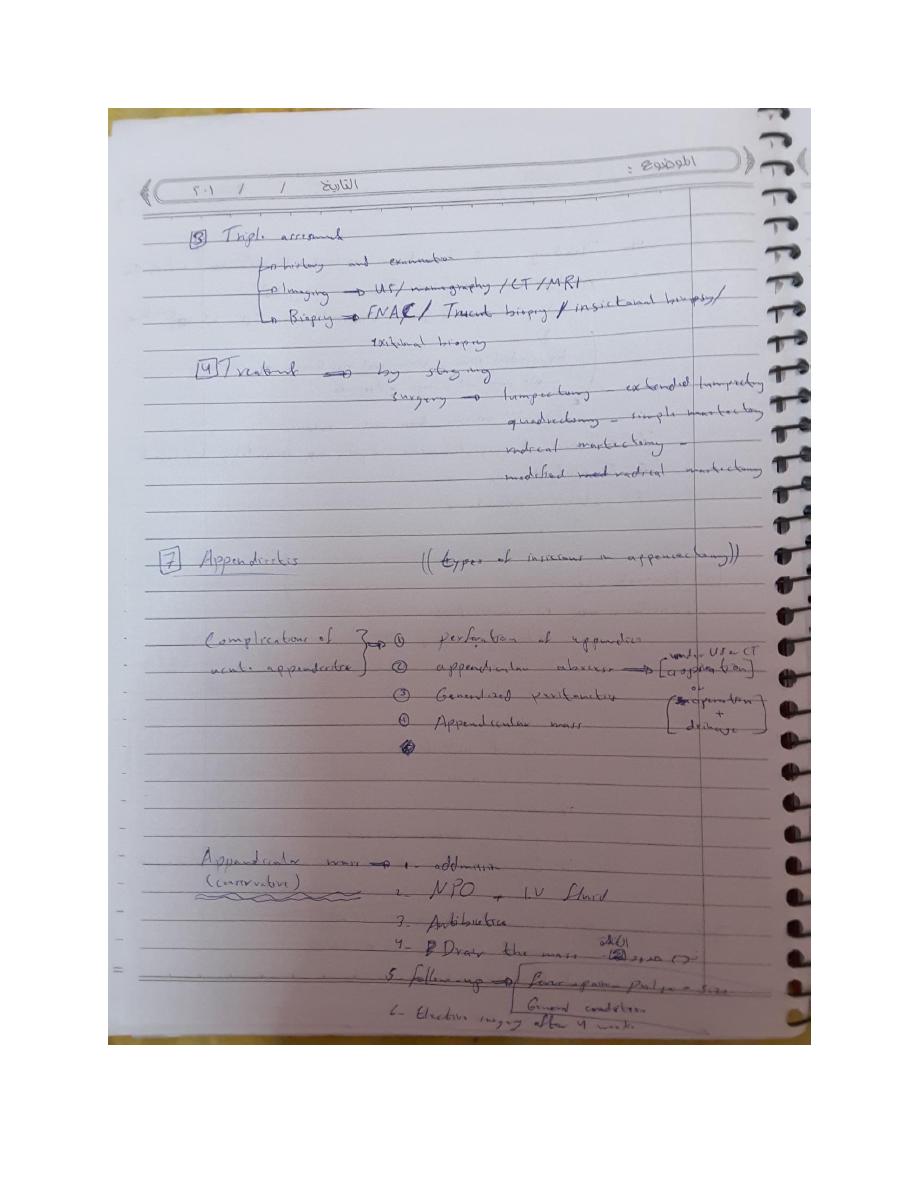 الموضوع :
التاريخ / / ٢٠١
3 Triple assessment
history and examination
Imaging → US / mamography / CT / MRI
Biopsy → FNAC / Trucut biopsy / insictonal biopsy /
exitional biopsy
4 Treatment ⇒ by staging
surgery → lumpectomy - extended lumpectomy
quadrectomy - simple mastectomy
radical mastectomy -
modified radical mastectomy
7 Appendicitis ((types of insicions in appenectomy))
Complications of acute appendicitis ⇒ ① perforation of appendix
② appendicular abscess ⇒ [aspiration] under US or CT
or
③ Generalized peritonitis [operation
④ Appendicular mass + drainage]
Appendicular mass ⇒ 1- addmission
(conservative) 2- NPO + I.V fluid
3- Antibiotics
4- Draw the mass حدود
5- follow-up ⇒ fever - pain - Pulse - size
General condition
6- Elective surgery after 4 weeks